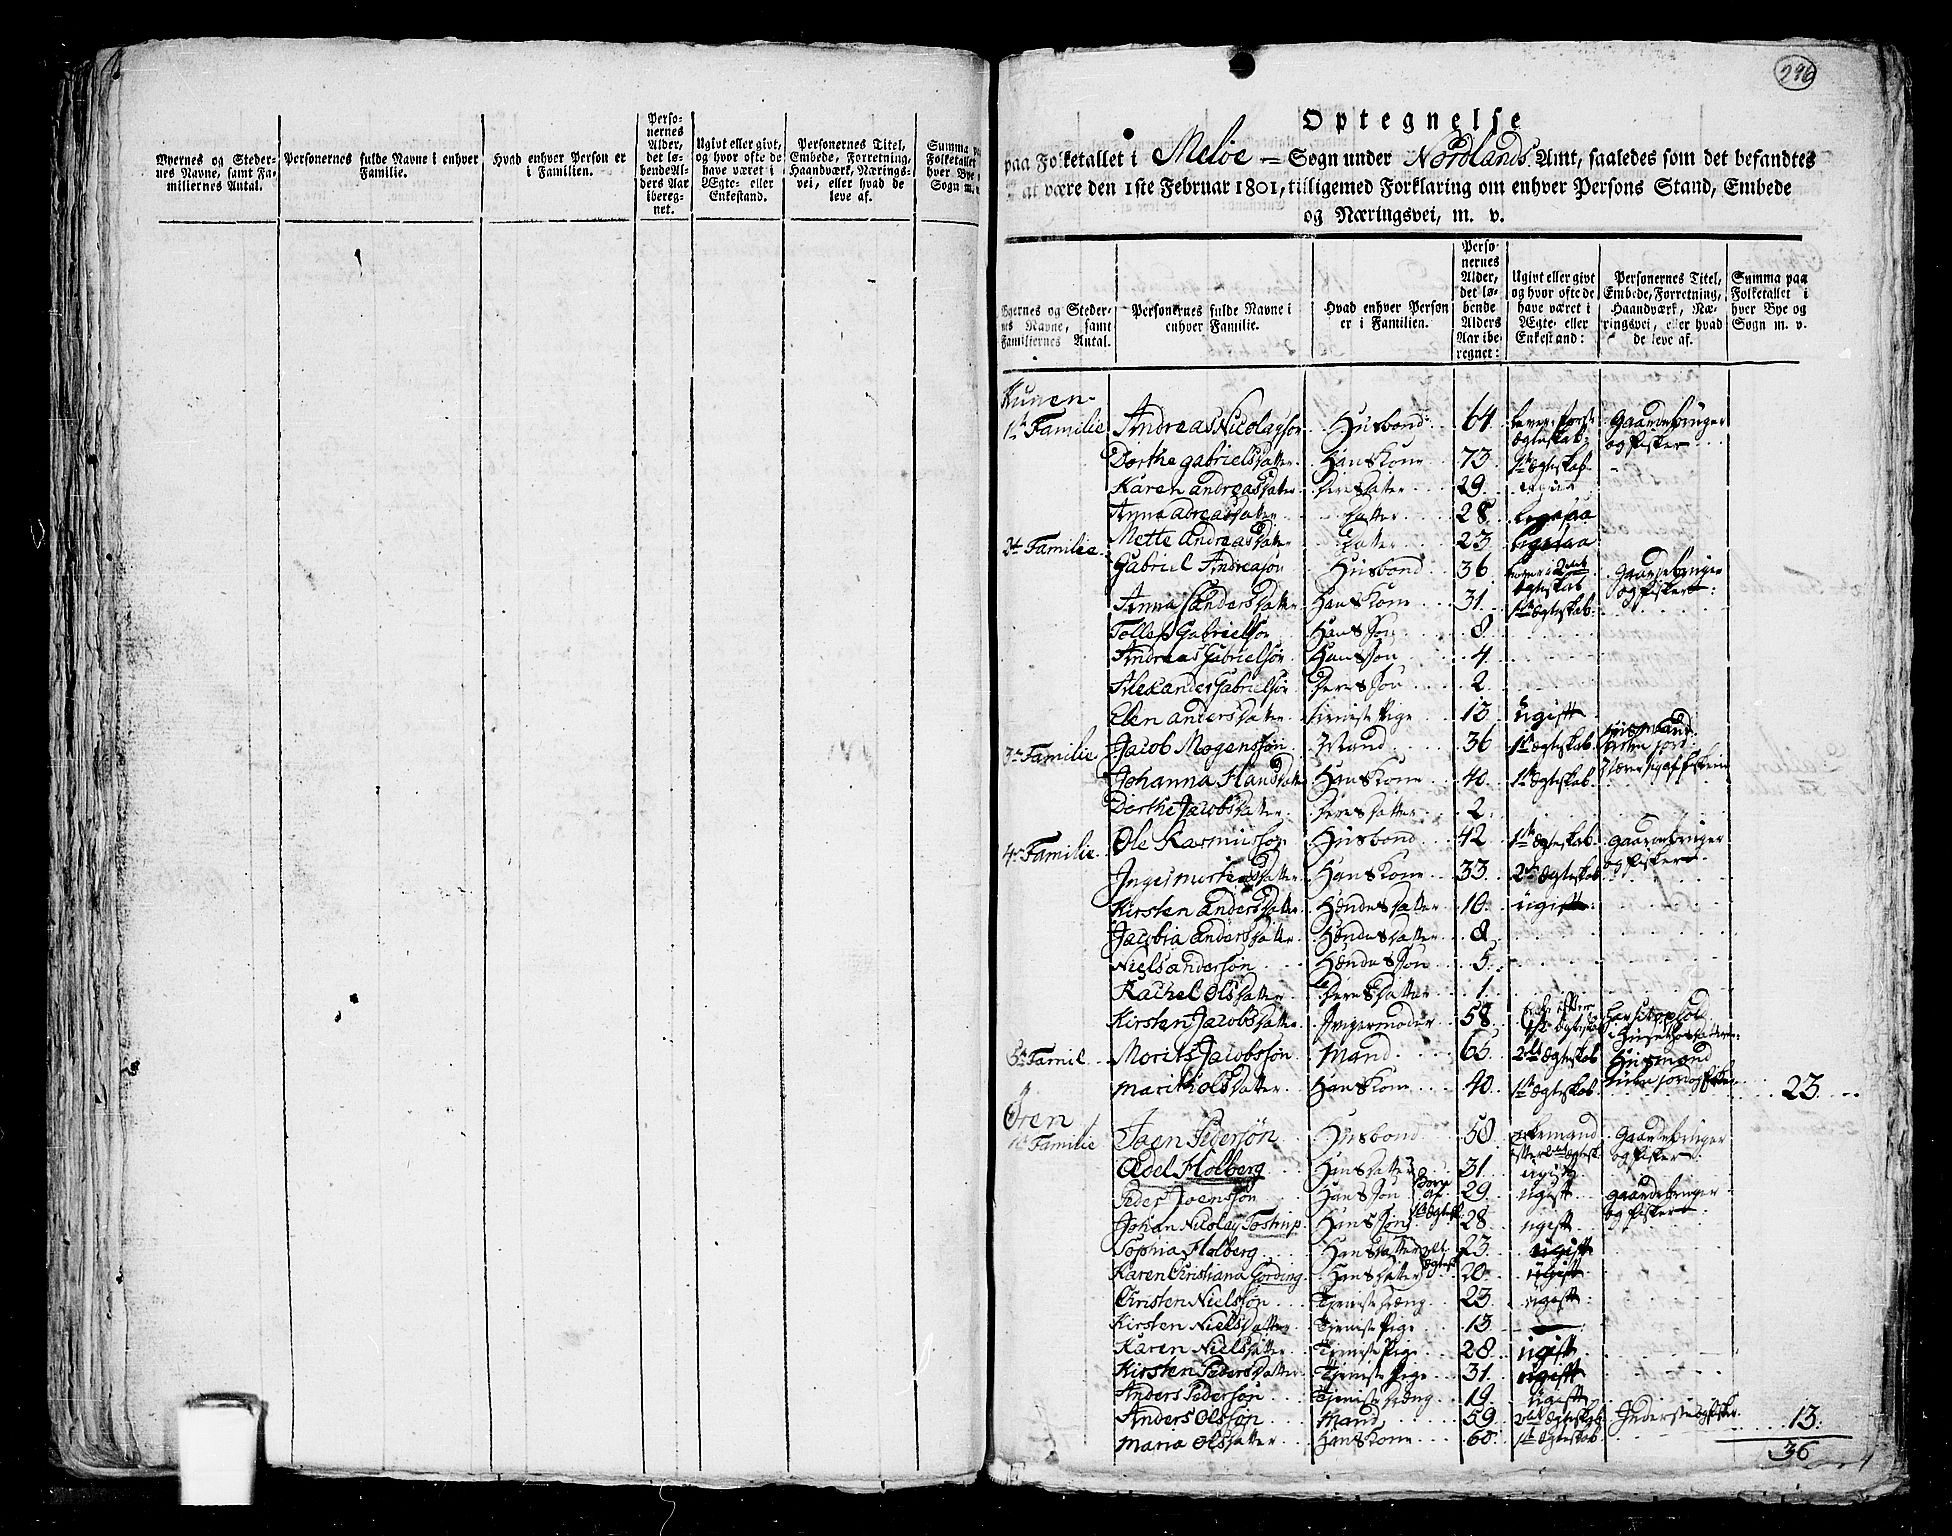 Byernes og Steder-
nes Navne, samt Fa-
miliernes Antal.
Personernes fulde Navne i enhver
Familie.
Hvad enhver Person er
i Familien.
Perso-
nernes
Alder,
det lø-
bende Al-
ders Aar
ibereg-
net.
Ugivt eller givt,
og hvor ofte de
have været i
Ægte- eller
Enkestand.
Personernes Titel,
Embede, Forretning,
Haandværk, Nærings-
vei, eller hvad de
leve af.
Summa pa
Folketallet
hver By
Sogn m.
296
Optegnelse
paa Folketallet i Meløe Sogn under Nordlands Amt, saaledes som det befandtes
at være den 1ste Februar 1801, tilligemed Forklaring om enhver Persons Stand, Embede
og Næringsvei, m. v.
Byernes og Steder-
nes Navne, samt
Familiernes Antal.
Personernes fulde Navne i
enhver Familie.
Hvad enhver Person
er i Familien.
Perso-
nernes
Alder,
det lø-
bende
Alders
Aar ibe-
regnet:
Ugivt eller givt
og hvor ofte de
have været i
Ægte- eller
Enkestand:
Personernes Titel,
Embede, Forretning,
Haandværk, Næ-
ringsvei, eller hvad
de leve af.
Summa paa
Folketallet i
hver Bye og
Sogn m. v.
Kunen
1te Familie Andreas Nicolaysøn Husbond 64 Gaardebruger
ægteskab og fisker
Dorthe Gabrielsdatter Hans Kone 73 1te ægteskab
Karen Andreasdatter Deres datter 29 ugivt
Anna Adreasdatter datter 28 ligesaa
Mette Andreasdatter datter 23 ligesaa
2de Familie Gabriel Andreasøn Husbond 36 Gaardebruger
ægteskab og fisker
Anna Sandersdatter Hans Kone 31 1te ægteskab
Tollef Gabrielsøn Hans Søn 8
Andreas Gabrielsøn Hans Søn 4
Alexander Gabrielsøn Deres Søn 2
Elen Andersdatter tieneste Pige 13 ugift
3de Familie Jacob Mogensøn Mand 36 1te ægteskab Huusmand
uden jord
Johanna Hansdatter Hans Kone 40 1te ægteskab
Dorthe Jacobsdatter Deres datter 2
4de Familie Ole Rasmussøn Husbond 42 1te ægteskab Gaardebruger
og fisker
Inger Mortensdatter Hans Kone 33 2det ægteskab
Kirsten Andersdatter Hendes datter 10 ugift
Jacobia Andersdatter Hendes datter 8
Niels Andersøn Hendes Søn 5
Rachel Olsdatter Deres datter 1
Kirsten Jacobsdatter Svigermoder 58
5te Famil Morits Jacobsøn Mand 65 2det ægteskab Husmand
Marith Olsdatter Hans Kone 40 1te ægteskab uden jord og fisker 23
Ören
1te Familie Jaen Pedersøn Husbond 58 enkemand Gaardebruger
og fisker
Adel Holberg Hans datter 31 ugift
Peder Joensøn Hans Søn 29 ugift Gaardebruger
og fisker
Johan Nicolay Tostrup Hans Søn 28 ugift
Sophia Holberg Hans datter 23 ugift
Karen Christiana Gording Hans datter 20 ugift
Christen Nielsøn Tieneste dreng 23 ugift
Kirsten Nielsdatter Tieneste Pige 13 —
Karen Nielsdatter Tieneste Pige 28 ugift
Kirsten Pedersdatter Tieneste Pige 31 ugift
Anders Pedersøn Tieneste dreng 19 ugift
Anders Olsøn Mand 59 2det ægteskab Inderste og fisker 13
Maria Olsdatter Hans Kone 60 1te ægteskab
36